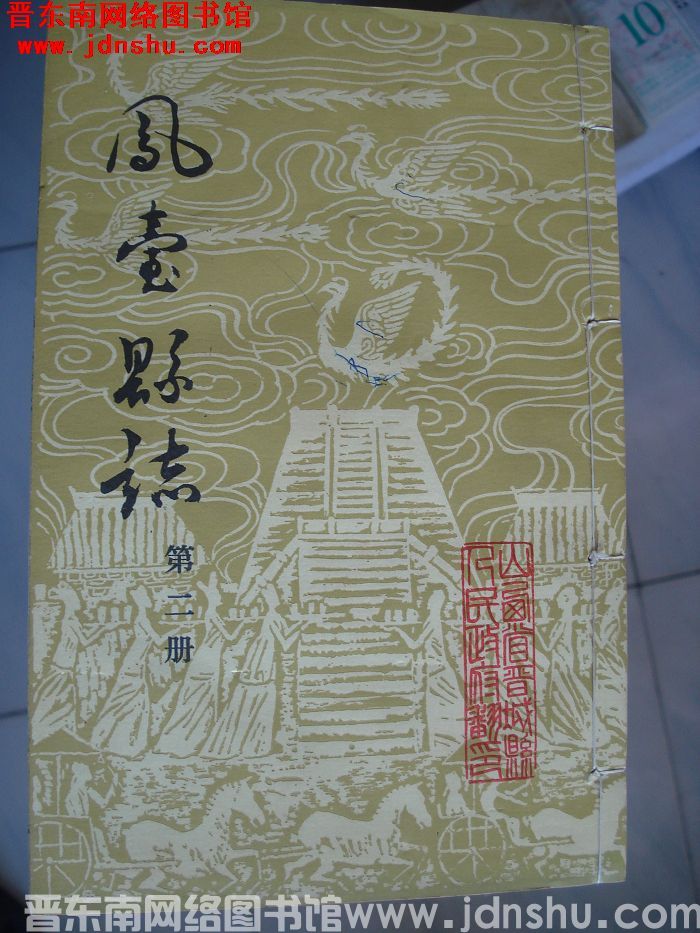 晋东南网络图书馆
www.jdnshu.com
10
鳳臺縣誌
第二册
山西省晋城縣
人民政府翻印
晋东南网络图书馆www.jdnshu.com